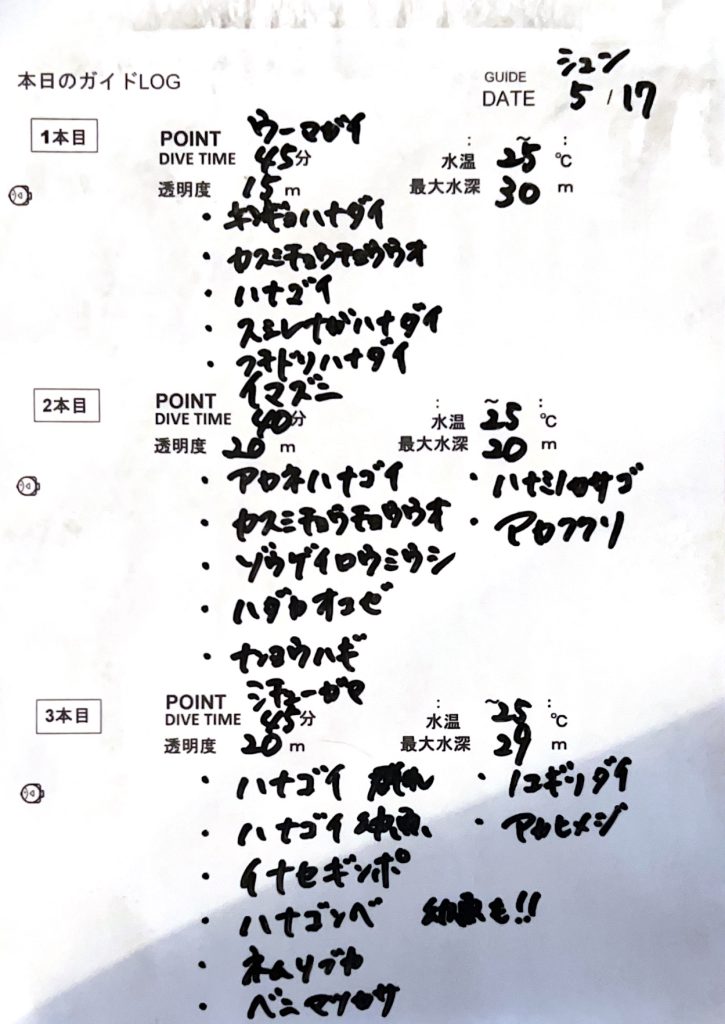 本日のガイドLOG
GUIDE シュン
DATE 5 / 17
1本目
POINT ウーマガイ
DIVE TIME 45分
: ~ :
水温 25 ℃
透明度 15 m
最大水深 30 m
・キンギョハナダイ
・カスミチョウチョウウオ
・ハナゴイ
・スミレナガハナダイ
・フタイロハナダイ
2本目
POINT イマズニ
DIVE TIME 40分
: ~ :
水温 25 ℃
透明度 20 m
最大水深 20 m
・アカネハナゴイ
・カスミチョウチョウウオ
・ゾウゲイロウミウシ
・ハダカオコゼ
・ナンヨウハギ
・ハナミノカサゴ
・アカククリ
3本目
POINT ガマ
DIVE TIME 45分
: ~ :
水温 25 ℃
透明度 20 m
最大水深 29 m
・ハナゴイ 群れ
・ハナゴイ 幼魚
・イナセギンポ
・ハナゴンベ 幼魚も!!
・ネムリブカ
・ベニマツカサ
・ノコギリダイ
・アカヒメジ